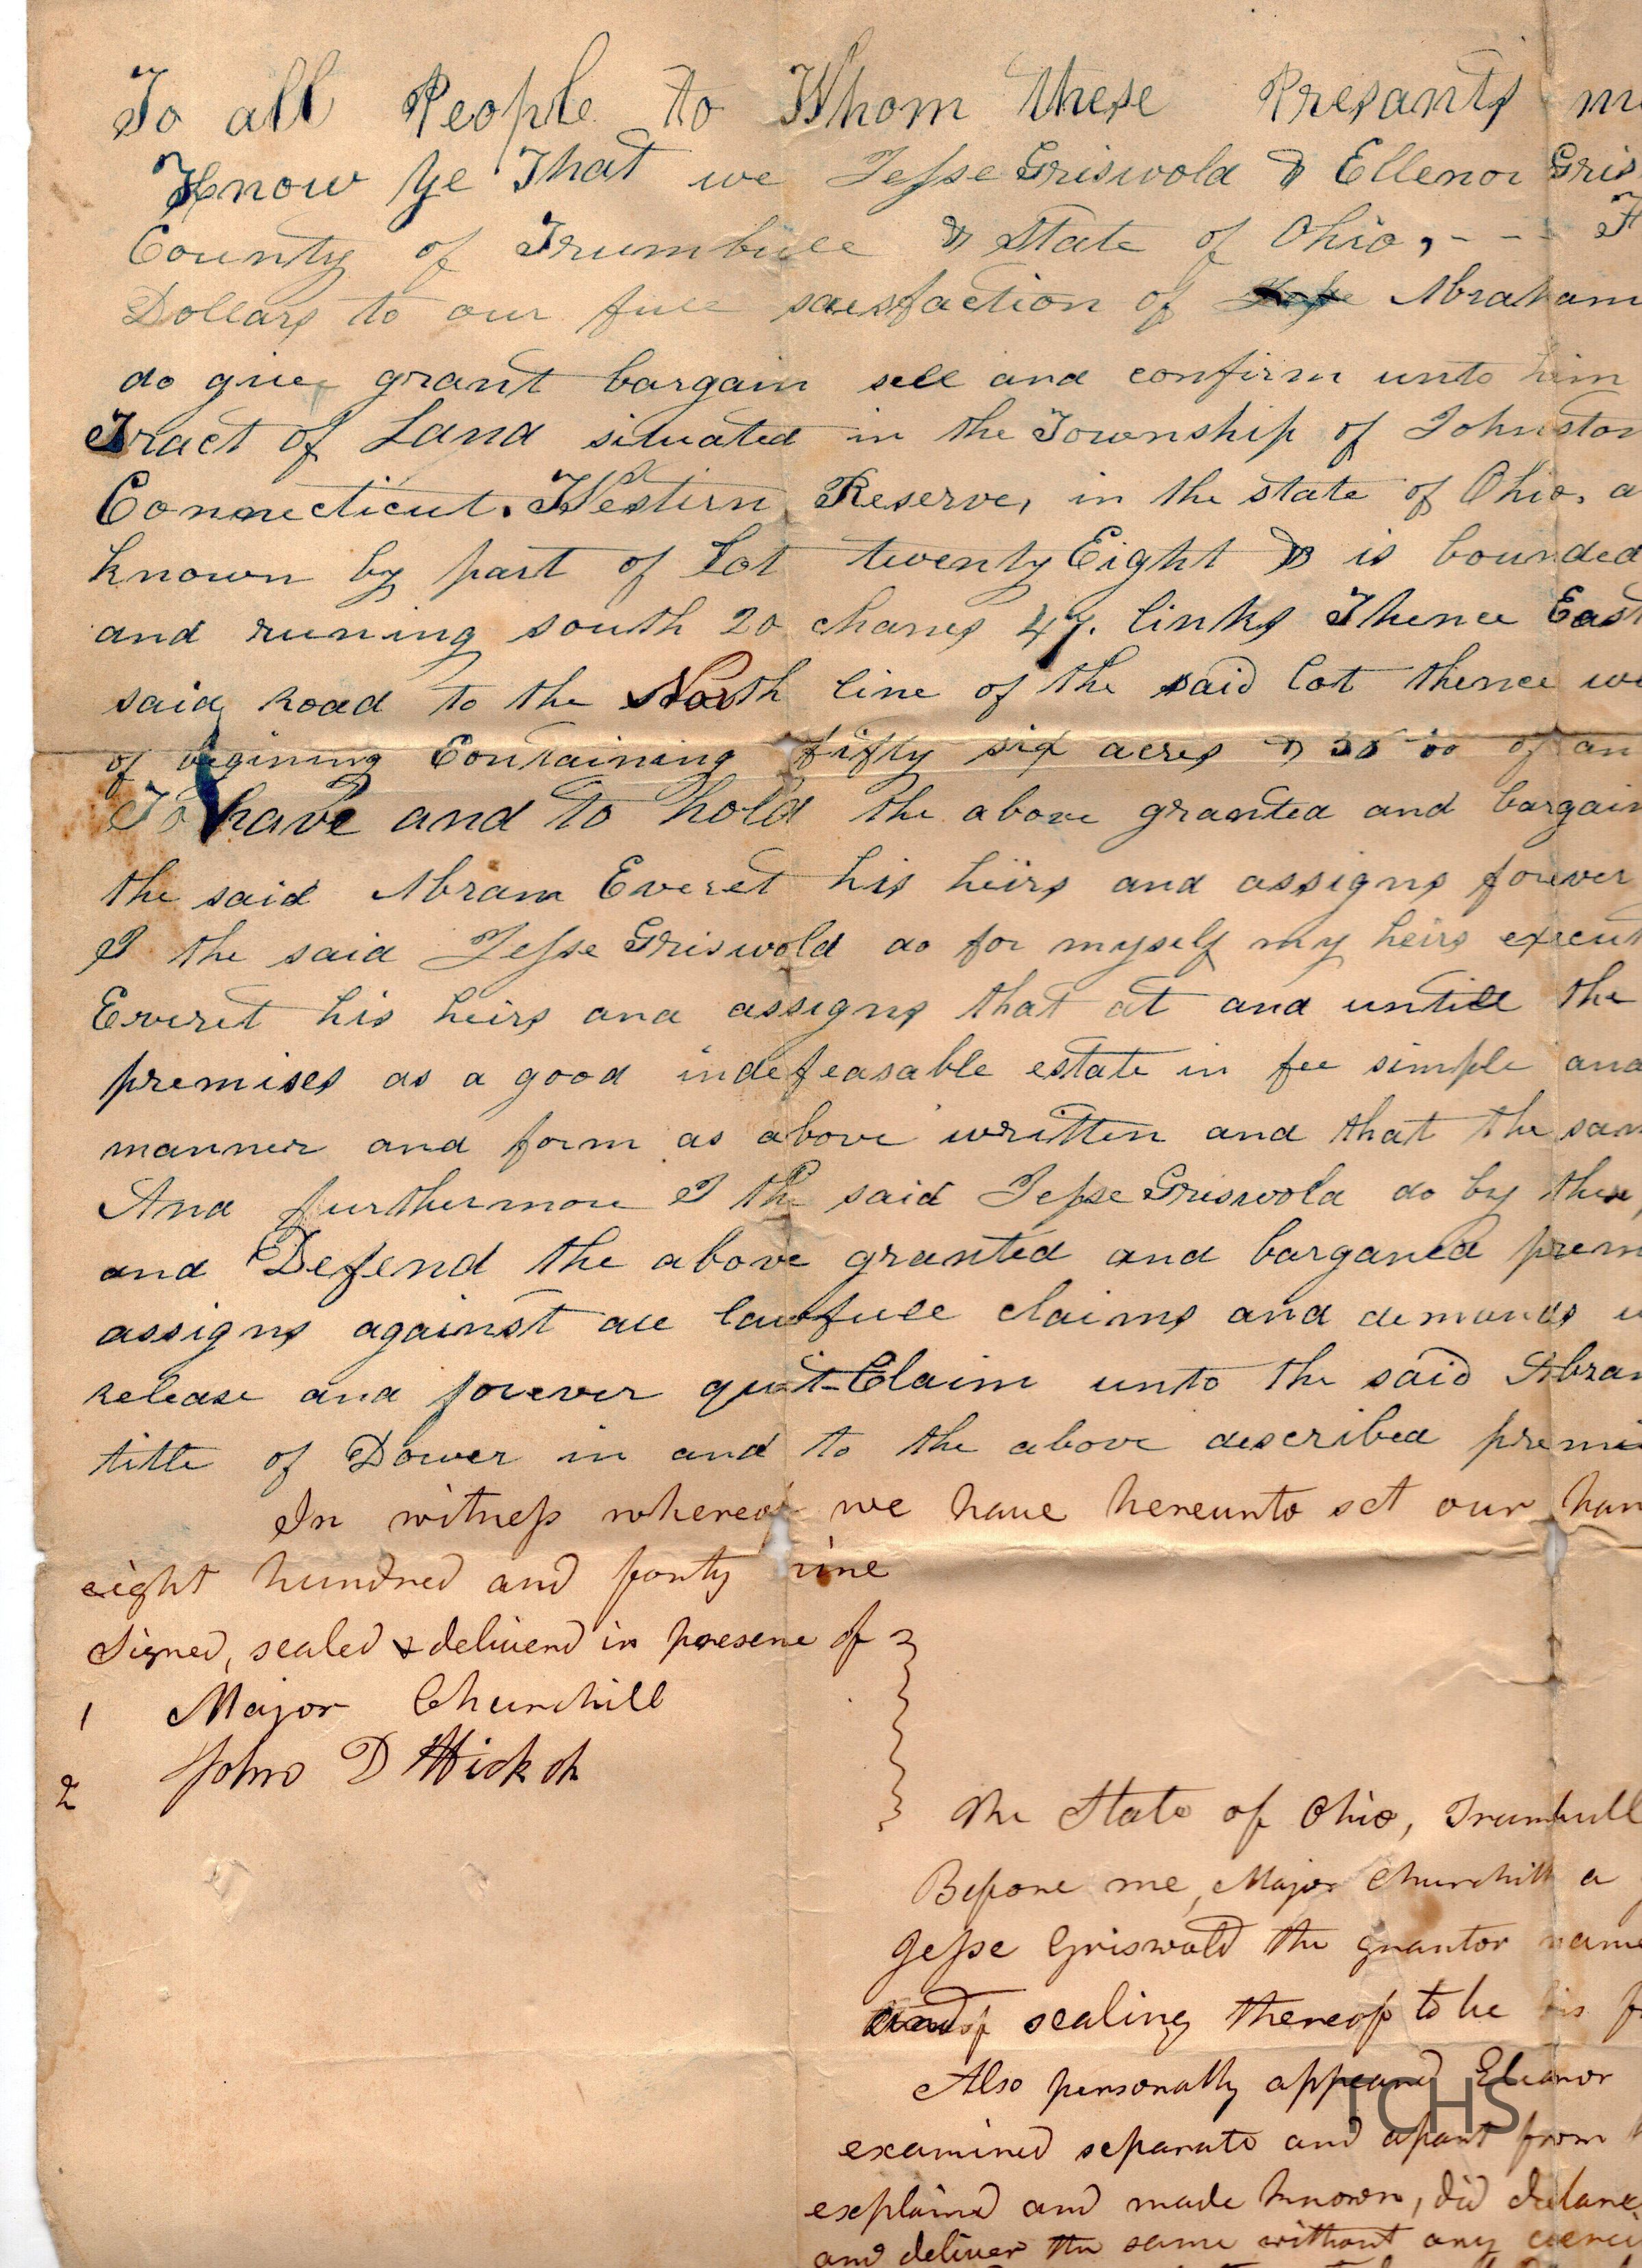 To all People to Whom these Presants
Know Ye That we Jesse Griswold & Ellenor Gris
County of Trumbull & State of Ohio, - - -
Dollars to our full saisfaction of Abraham
do give grant bargain sell and confirm unto him
Tract of Land situated in the Township of Johnston
Connecticut. Western Reserve, in the state of Ohio, a
known by part of Lot twenty Eight & is bounded
and runing south 20 chanes 47. links Thence East
said Road to the North line of the said lot thence we
of begining Containing fifty six acres & of an
To have and to hold the above granted and bargain
the said Abram Everet his heirs and assigns forever
I the said Jesse Griswold do for myself my heirs execut
Everet his heirs and assigns that at and untill the
premises as a good indefeasable estate in fee simple and
manner and form as above written and that the sam
And furthermore I the said Jesse Griswold do by these
and Defend the above granted and barganed prem
assigns against all lawfull claims and demands
release and forever quit-Claim unto the said Abram
title of Dower in and to the above described premi
In witness whereof we have hereunto set our han
eight hundred and forty nine
Signed, sealed & deliverd in presence of
1 Major Churchill
2 John D Hickok
The State of Ohio, Trumbull
Before me, Major Churchill a
Jesse Griswold the grantor name
sealing thereof to be his fr
Also personally appeard Eleanor
TCHS
examined separate and apart from h
explaind and made known, did declare
and deliver the same without any coerci